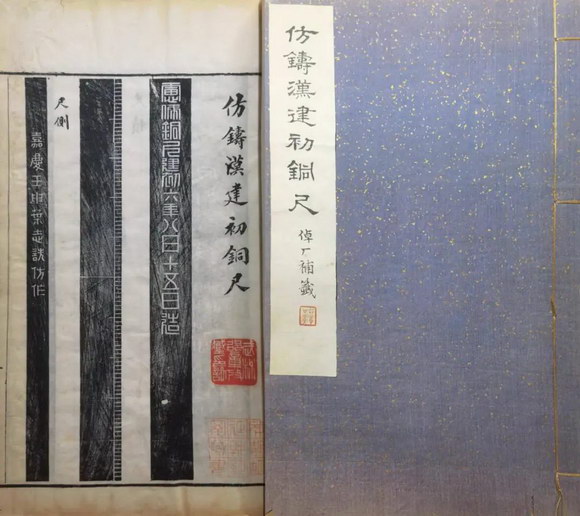 仿鑄漢建初銅尺
倬厂補籤
仿鑄漢建初銅尺
慮俿銅尺建初六年八月十五日造
尺側
嘉慶壬申葉志詵仿作